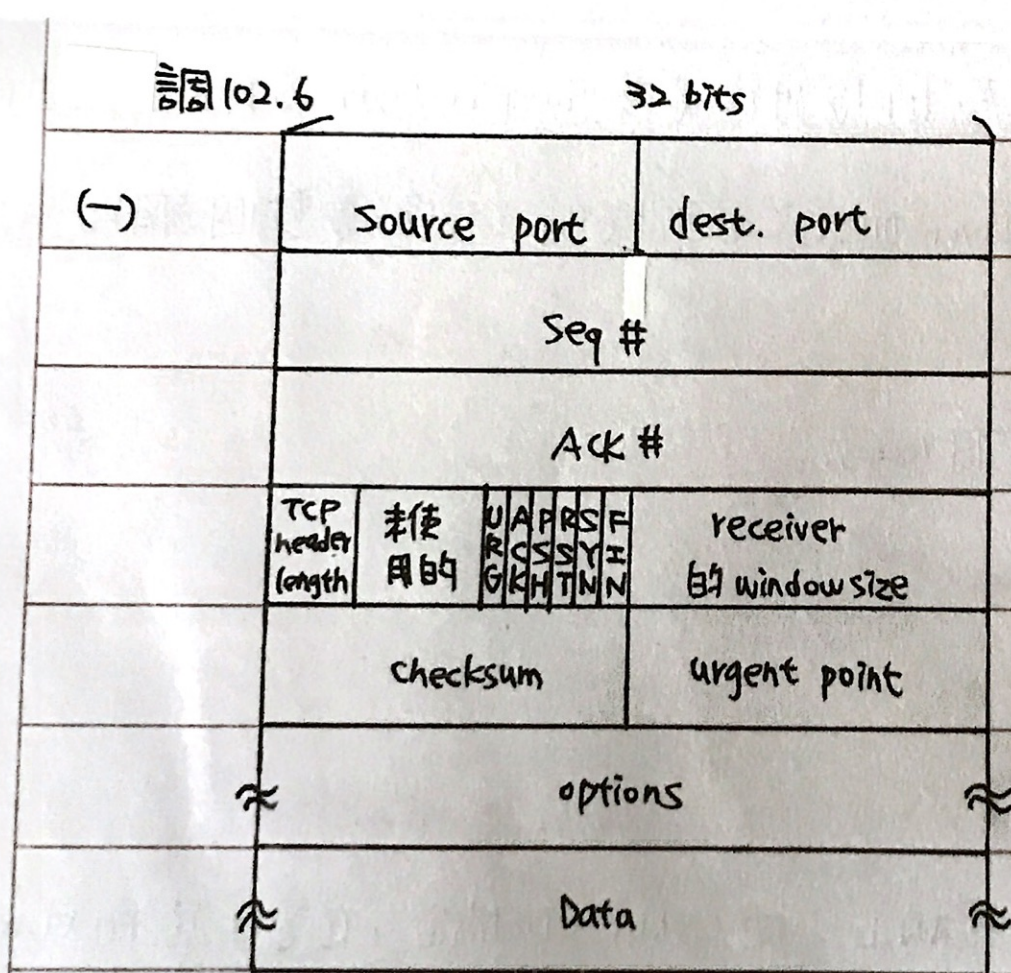 調102.6 32 bits
(一) Source port dest. port
Seq #
Ack #
TCP header length 未使用的 URG ACK PSH RST SYN FIN receiver 的 window size
checksum urgent point
options
Data